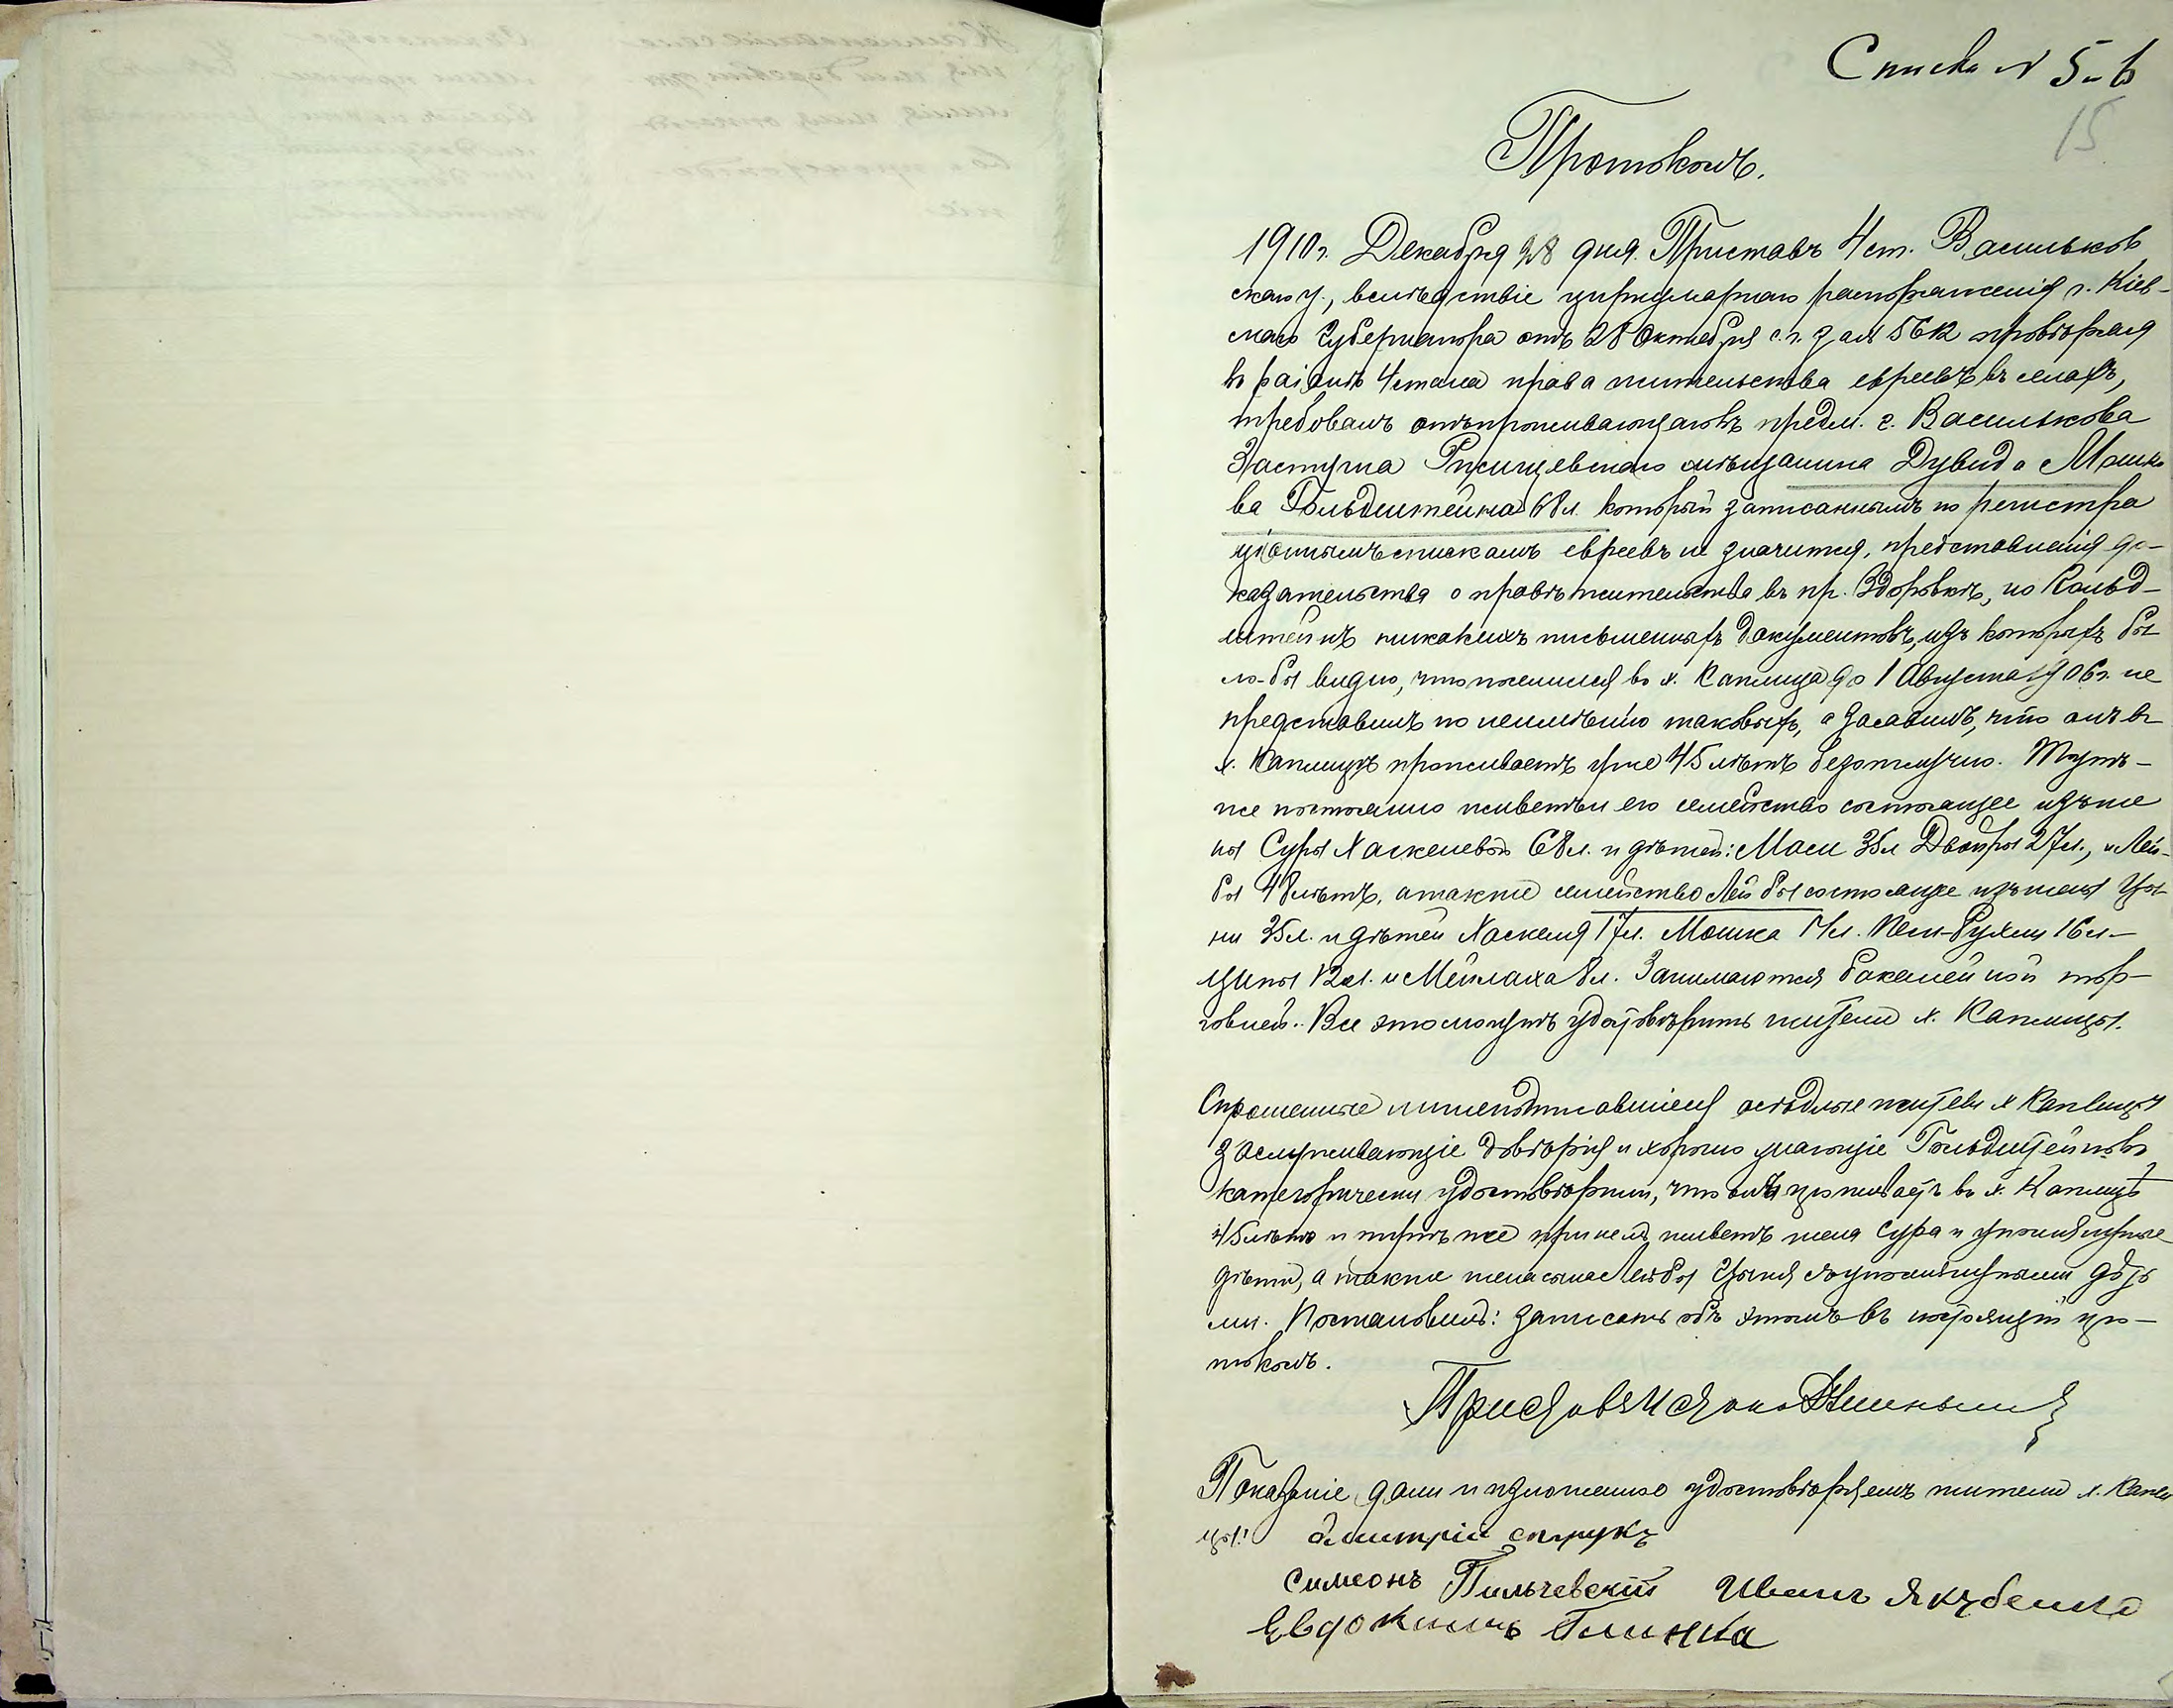 Списка № 5-6
15
Протоколъ.
1910 г. Декабря 28 дня. Приставъ 4 ст. Васильков
скаго у., вслѣдствіе циркулярнаго распоряженія г. Кіев-
скаго Губернатора отъ 28 Октября с. г. за № 5612 провѣряя
въ раіонѣ 4 стана права жительства евреевъ въ селахъ,
требовалъ отъ проживающаго въ предм. г. Василькова
Застугна Ржищевскаго мѣщанина Дувида Мошко
ва Гольдштейна 68 л. который записаннымъ по регистра
ціоннымъ спискамъ евреевъ не значится, представленія до-
казательства о правѣ жительства въ пр. Здоровкѣ, но Гольд-
штейнъ никакихъ письменныхъ документовъ, изъ которыхъ бы
ло-бы видно, что поселился въ х. Каплица до 1 Августа 1906 г. не
представилъ по неимѣнію таковыхъ, а заявилъ, что онъ въ
х. Каплицѣ проживаетъ уже 45 лѣтъ безотлучно. Тутъ-
же постоянно живетъ и его семейство состоящее изъ же
ны Суры Хаскелевой 68 л. и дѣтей: Маси 35 л Двойры 27 л., и Лей-
бы 48 лѣтъ, а также семейство Лейбы состоящее изъ жены Цы-
ни 35 л. и дѣтей Хаскеля 17 л. Мошка 14 л. Песи-Рухли 16 л-
Ципы 12 л. и Мейлаха 8 л. Занимаются бакалейной тор-
говлей. Все это могутъ удостовѣрить жители х. Каплицы.
Спрошенные нижеподписавшіеся осѣдлые жители х Каплицы
заслуживающіе довѣрія и хорошо знающіе Гольдштейновъ
категорически удостовѣрили, что онъ проживаетъ въ х. Каплицѣ
45 лѣтъ и тутъ же при немъ живетъ жена Сура и упомянутые
дѣти, а также жена сына Лейбы Цыня съ упомянутыми дѣть
ми. Постановилъ: записать объ этомъ въ настоящій про-
токолъ.
Приставъ
Показаніе дали и изложенное удостовѣряемъ жители х. Капли
цы: дмитрій струкъ
Симеонъ Пильчевскій Иванъ Якубенко
Евдокимъ Глинка